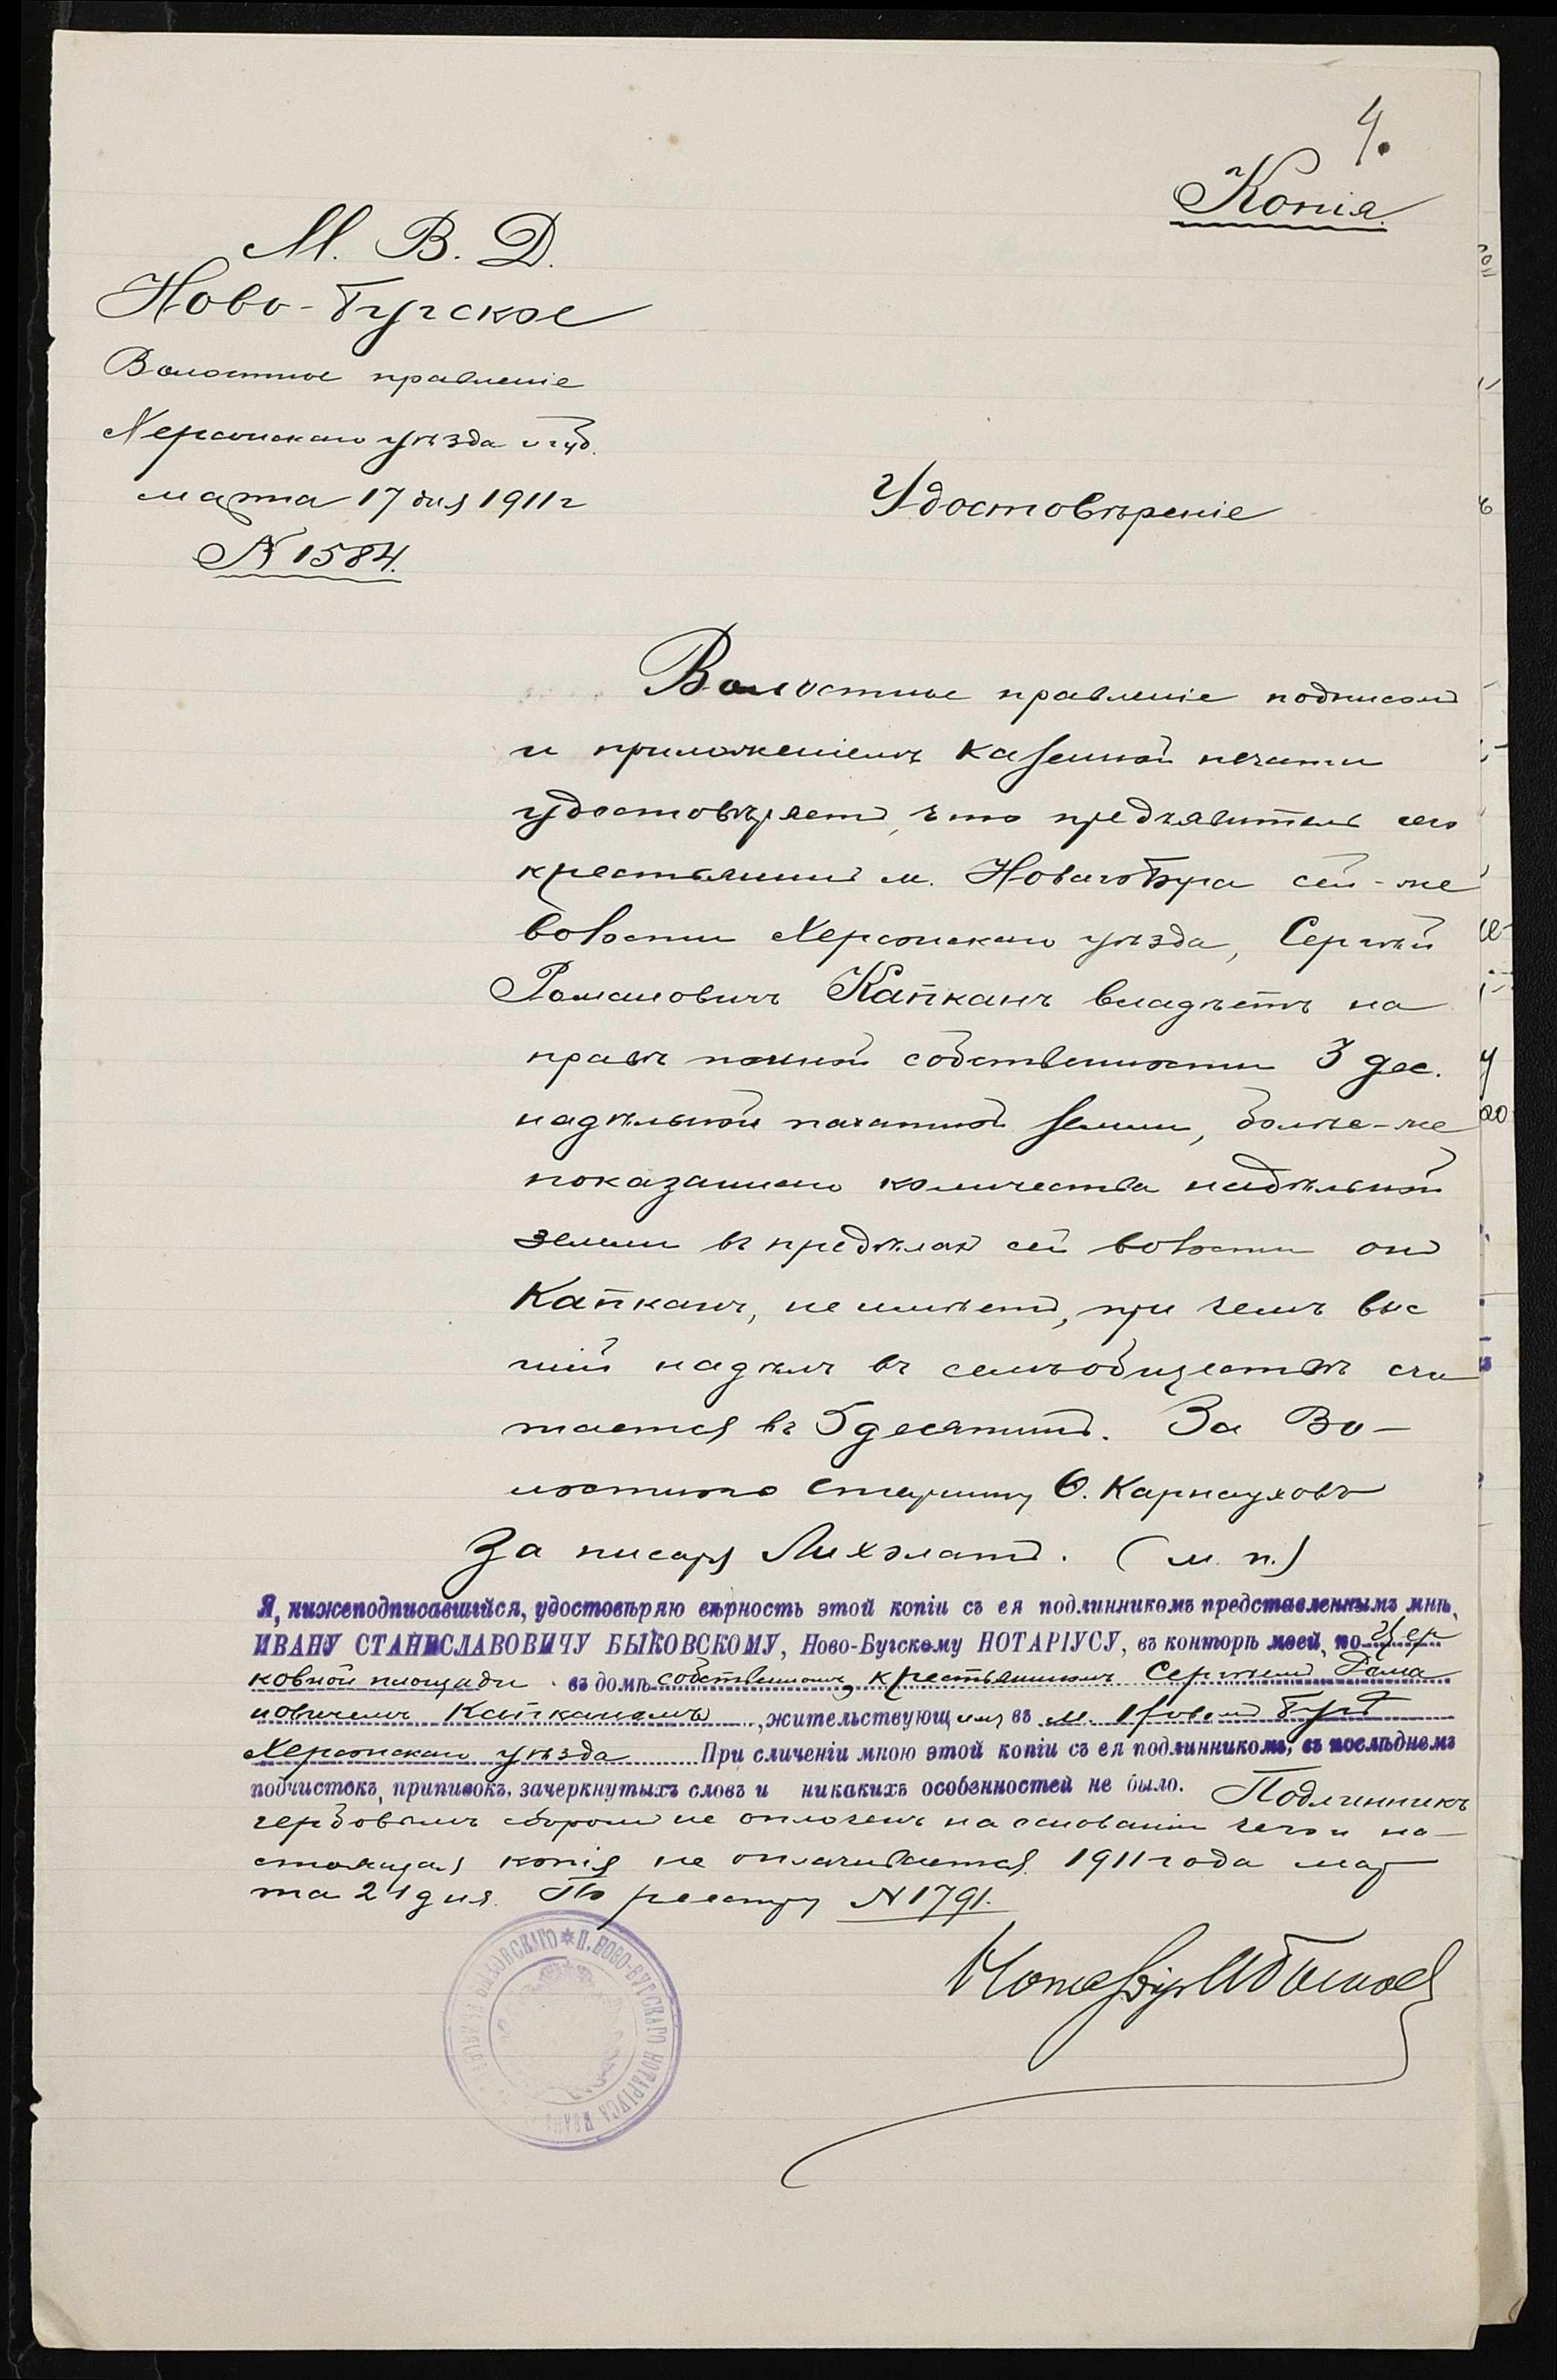 4.
Копія.
М. В. Д.
Ново-Бугское
Волостное правленіе
Херсонскаго уѣзда и губ.
марта 17 дня 1911 г
N 1584.
Удостовѣреніе
Волостное правленіе подписом
и приложеніемъ казенной печати
удостовѣряетъ, что предъявитель сего
крестьянинъ м. Новаго Буга сей-же
волости Херсонскаго уѣзда, Сергѣй
Романовичъ Капканъ владѣетъ на
правѣ полной собственности 3 дес.
надѣльной пахатной земли, болѣе-же
показаннаго количества надѣльной
земли въ предѣлах сей волости он
Капканъ, не имѣетъ, при чемъ выс
шій надѣлъ въ сельобществѣ счи
тается въ 5 десятинъ. За Во-
лостного Старшину О. Карнауховъ
За писаря Лихолатъ. (м. п.)
Я, нижеподписавшійся, удостовѣряю вѣрность этой копіи съ ея подлинникомъ представленнымъ мнѣ,
ИВАНУ СТАНИСЛАВОВИЧУ БЫКОВСКОМУ, Ново-Бугскому НОТАРІУСУ, въ конторѣ моей, по Цер
ковной площади въ домѣ собственномъ, крестьяниномъ Сергѣемъ Рома
новичемъ Капканомъ, жительствующимъ въ м. Новомъ Бугѣ
Херсонскаго уѣзда При сличеніи мною этой копіи съ ея подлинникомъ, въ послѣднемъ
подчистокъ, приписокъ, зачеркнутыхъ словъ и никакихъ особенностей не было. Подлинникъ
гербовымъ сборомъ не оплоченъ на основаніи чего и на-
стоящая копія не оплачивается. 1911 года мар
та 21 дня. По реестру N 1791.
Нотаріусъ И Быковс
БЫКОВСКАГО * П. НОВО-БУГСКАГО НОТАРІУСА ИВАНА